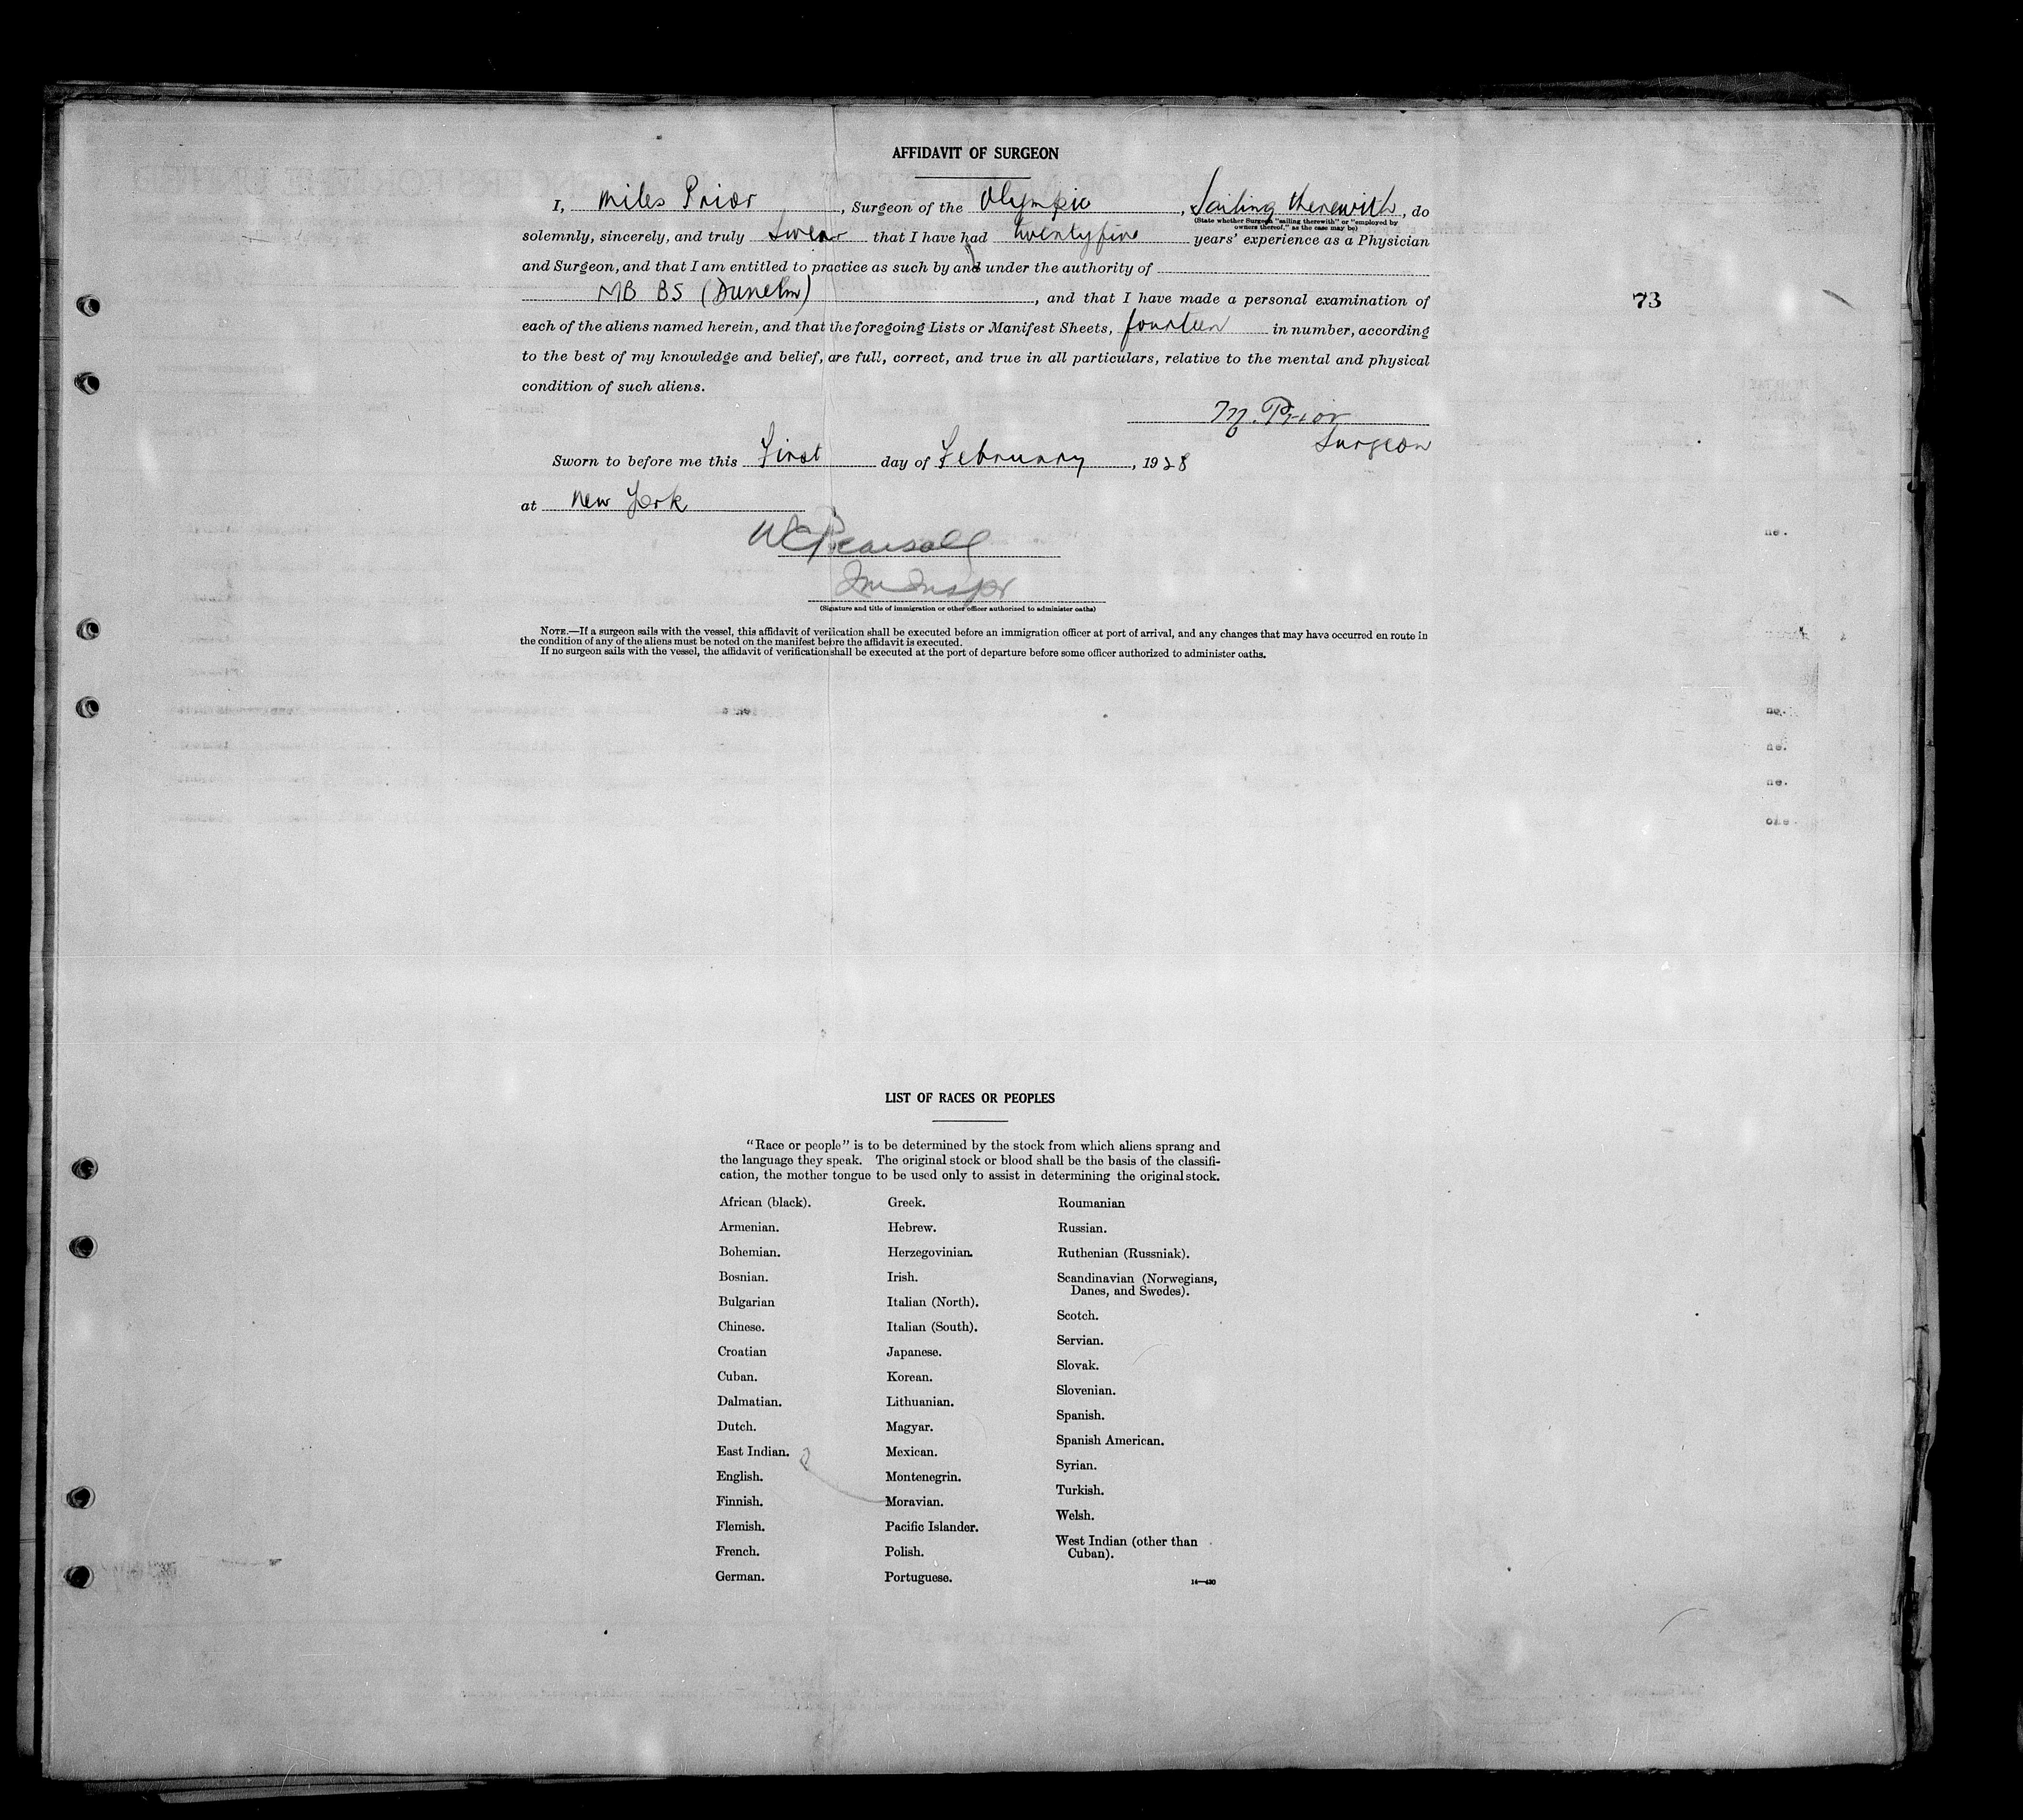 AFFIDAVIT OF SURGEON
I, Miles Prior, Surgeon of the Olympic, Sailing therewith, do
(State whether Surgeon "sailing therewith" or "employed by
owners thereof," as the case may be)
solemnly, sincerely, and truly Swear that I have had twentyfive years' experience as a Physician
and Surgeon, and that I am entitled to practice as such by and under the authority of
MB BS (Dunelm), and that I have made a personal examination of
73
each of the aliens named herein, and that the foregoing Lists or Manifest Sheets, fourteen in number, according
to the best of my knowledge and belief, are full, correct, and true in all particulars, relative to the mental and physical
condition of such aliens.
M. Prior
Surgeon
Sworn to before me this First day of February, 1928
at New York
WC Pearsall
Im Inspr
(Signature and title of immigration or other officer authorized to administer oaths)
NOTE.—If a surgeon sails with the vessel, this affidavit of verification shall be executed before an immigration officer at port of arrival, and any changes that may have occurred en route in
the condition of any of the aliens must be noted on the manifest before the affidavit is executed.
If no surgeon sails with the vessel, the affidavit of verification shall be executed at the port of departure before some officer authorized to administer oaths.
LIST OF RACES OR PEOPLES
"Race or people" is to be determined by the stock from which aliens sprang and
the language they speak. The original stock or blood shall be the basis of the classifi-
cation, the mother tongue to be used only to assist in determining the original stock.
African (black).
Armenian.
Bohemian.
Bosnian.
Bulgarian
Chinese.
Croatian
Cuban.
Dalmatian.
Dutch.
East Indian.
English.
Finnish.
Flemish.
French.
German.
Greek.
Hebrew.
Herzegovinian.
Irish.
Italian (North).
Italian (South).
Japanese.
Korean.
Lithuanian.
Magyar.
Mexican.
Montenegrin.
Moravian.
Pacific Islander.
Polish.
Portuguese.
Roumanian
Russian.
Ruthenian (Russniak).
Scandinavian (Norwegians,
Danes, and Swedes).
Scotch.
Servian.
Slovak.
Slovenian.
Spanish.
Spanish American.
Syrian.
Turkish.
Welsh.
West Indian (other than
Cuban).
14—430